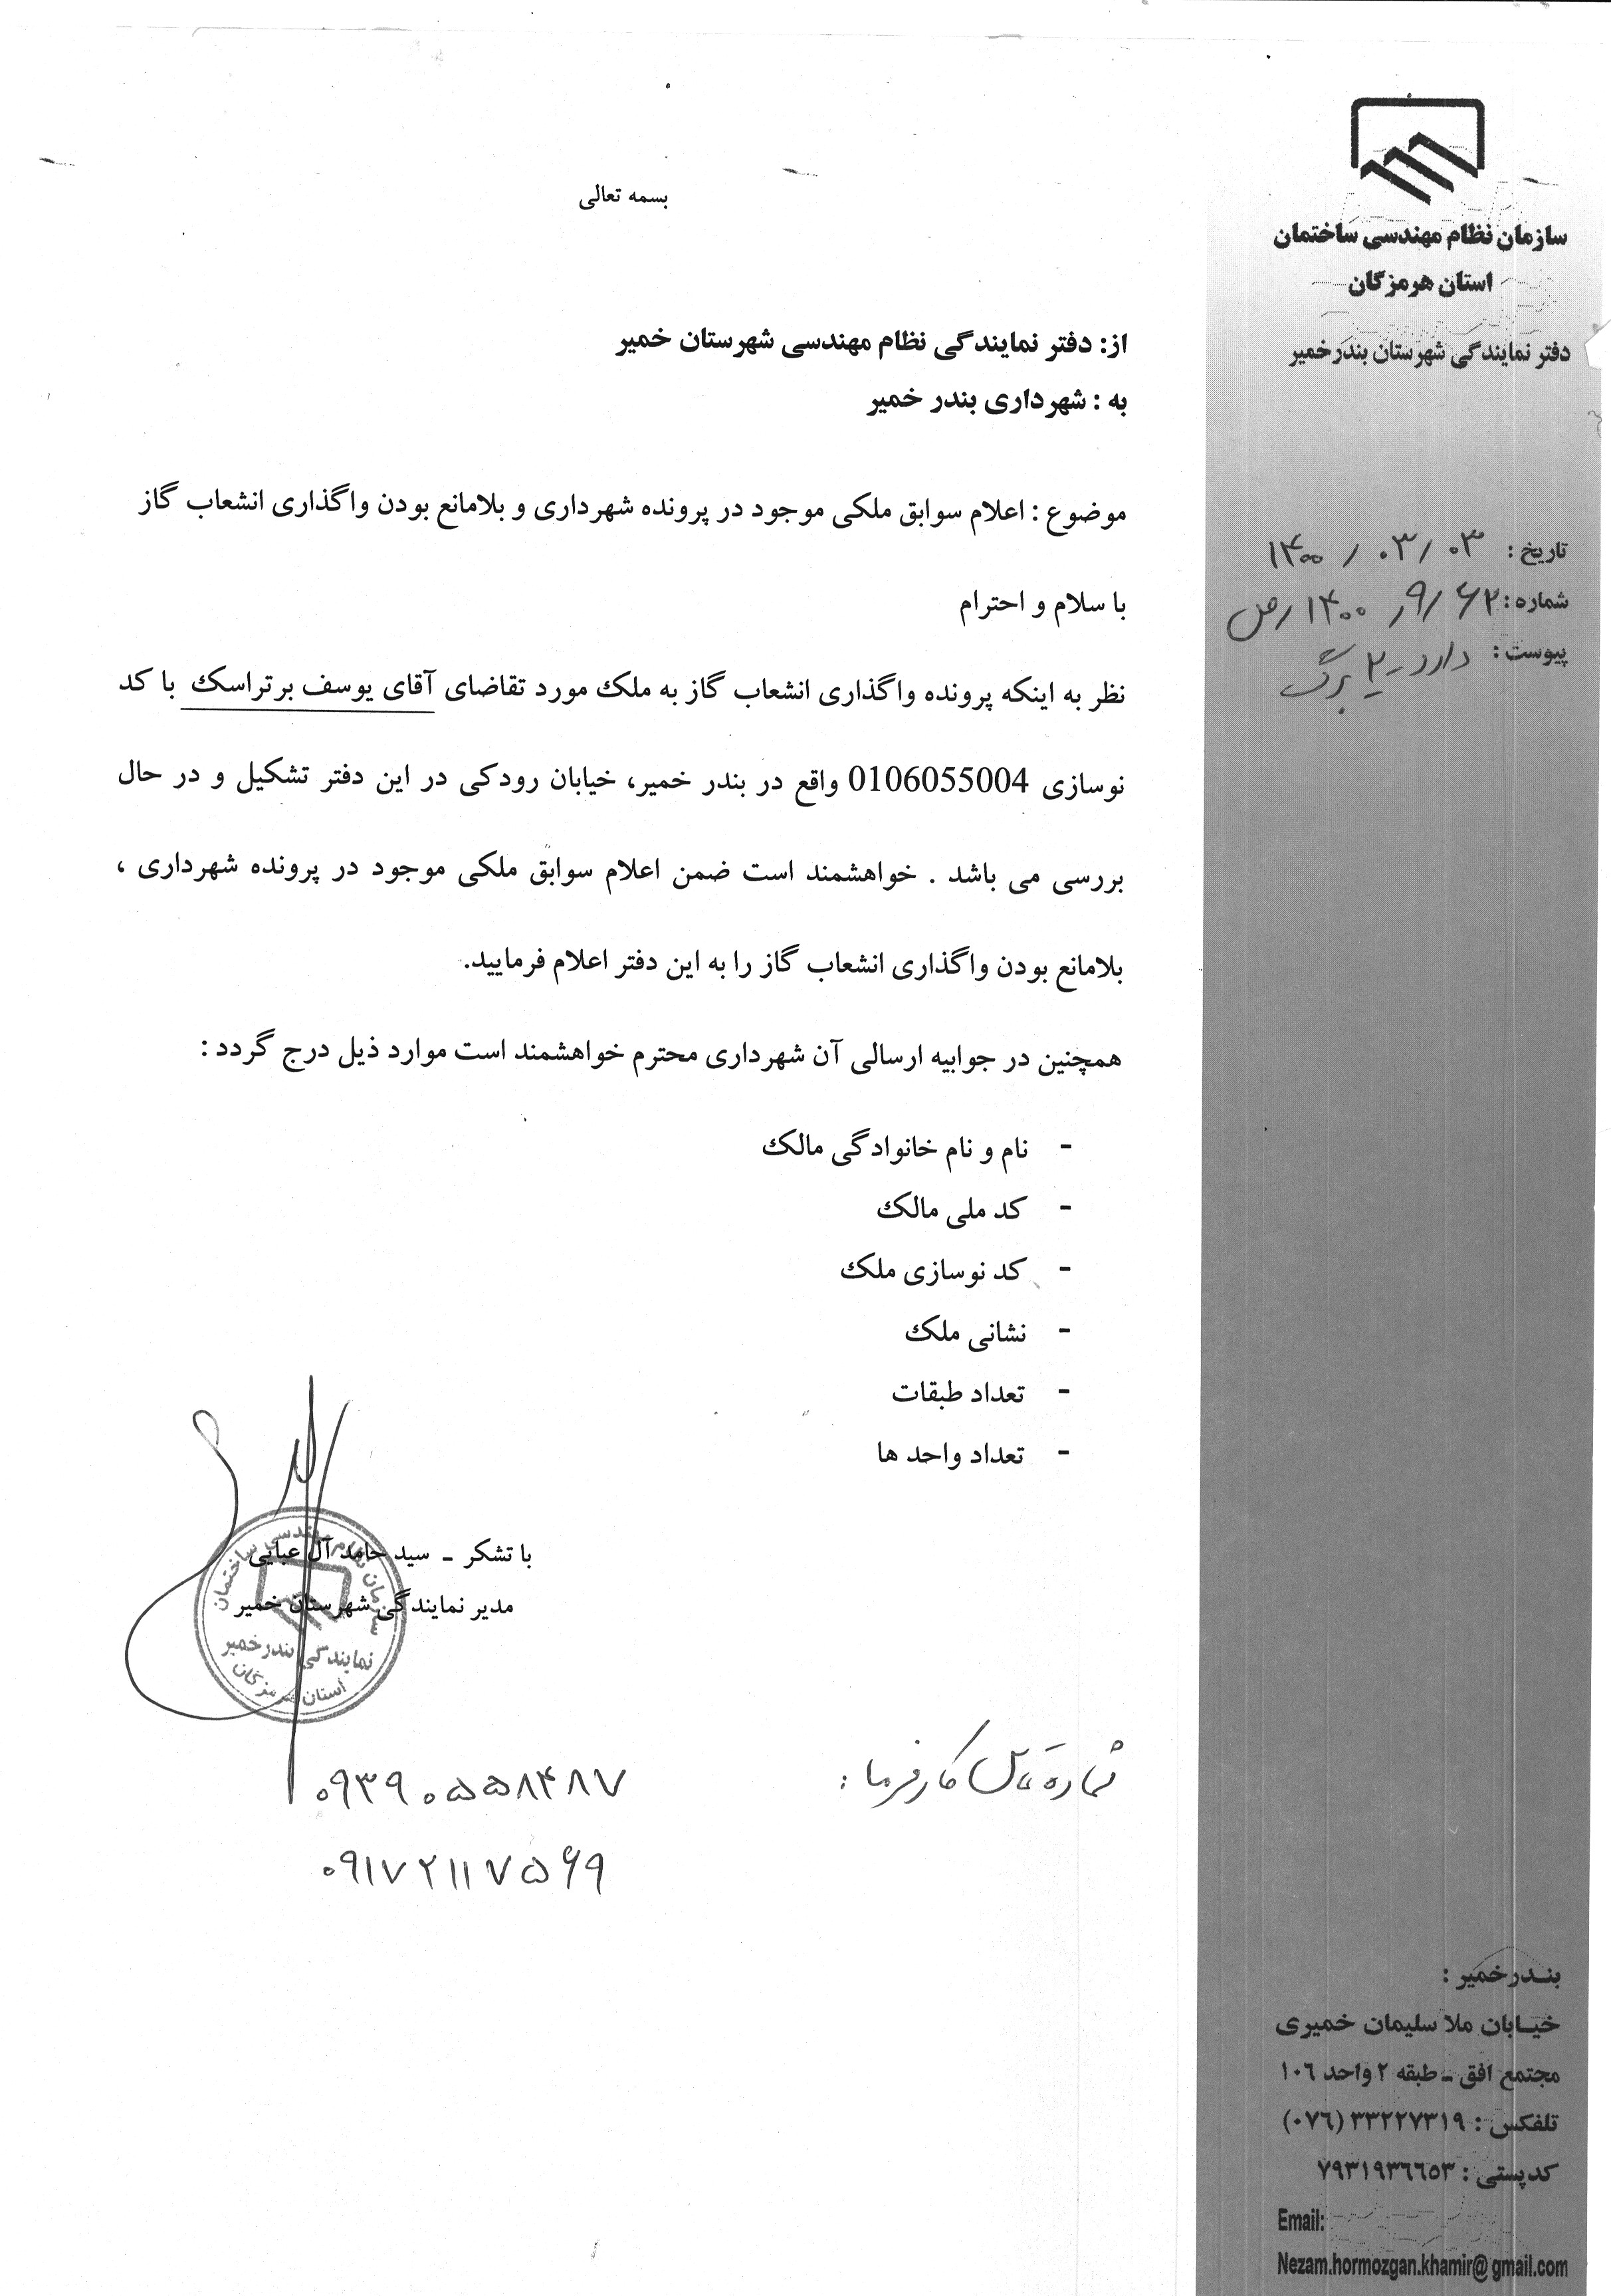 سازمان نظام مهندسی ساختمان
استان هرمزگان
دفتر نمایندگی شهرستان بندرخمیر
تاریخ : ۱۴۰۰/۰۳/۰۳
شماره : ۶۲/ ۹ر ۱۴۰۰/ص
پیوست : دارد-۲ برگ
بسمه تعالی
از: دفتر نمایندگی نظام مهندسی شهرستان خمیر
به : شهرداری بندر خمیر
موضوع : اعلام سوابق ملکی موجود در پرونده شهرداری و بلامانع بودن واگذاری انشعاب گاز
با سلام و احترام
نظر به اینکه پرونده واگذاری انشعاب گاز به ملک مورد تقاضای آقای یوسف برتراسک با کد
نوسازی 0106055004 واقع در بندر خمیر، خیابان رودکی در این دفتر تشکیل و در حال
بررسی می باشد . خواهشمند است ضمن اعلام سوابق ملکی موجود در پرونده شهرداری ،
بلامانع بودن واگذاری انشعاب گاز را به این دفتر اعلام فرمایید.
همچنین در جوابیه ارسالی آن شهرداری محترم خواهشمند است موارد ذیل درج گردد :
- نام و نام خانوادگی مالک
- کد ملی مالک
- کد نوسازی ملک
- نشانی ملک
- تعداد طبقات
- تعداد واحد ها
با تشکر ـ سید حامد آل عبایی
مدیر نمایندگی شهرستان خمیر
سازمان نظام مهندسی ساختمان
نمایندگی بندرخمیر
استان هرمزگان
شماره تماس کارفرما :
۰۹۳۹۰۵۵۸۴۸۷
۰۹۱۷۲۱۱۷۵۶۹
بندرخمیر :
خیابان ملا سلیمان خمیری
مجتمع افق ـ طبقه ۲ واحد ۱۰۶
تلفکس : ۳۳۲۲۷۳۱۹ (۰۷۶)
کدپستی : ۷۹۳۱۹۳۶۶۵۳
Email:
Nezam.hormozgan.khamir@gmail.com